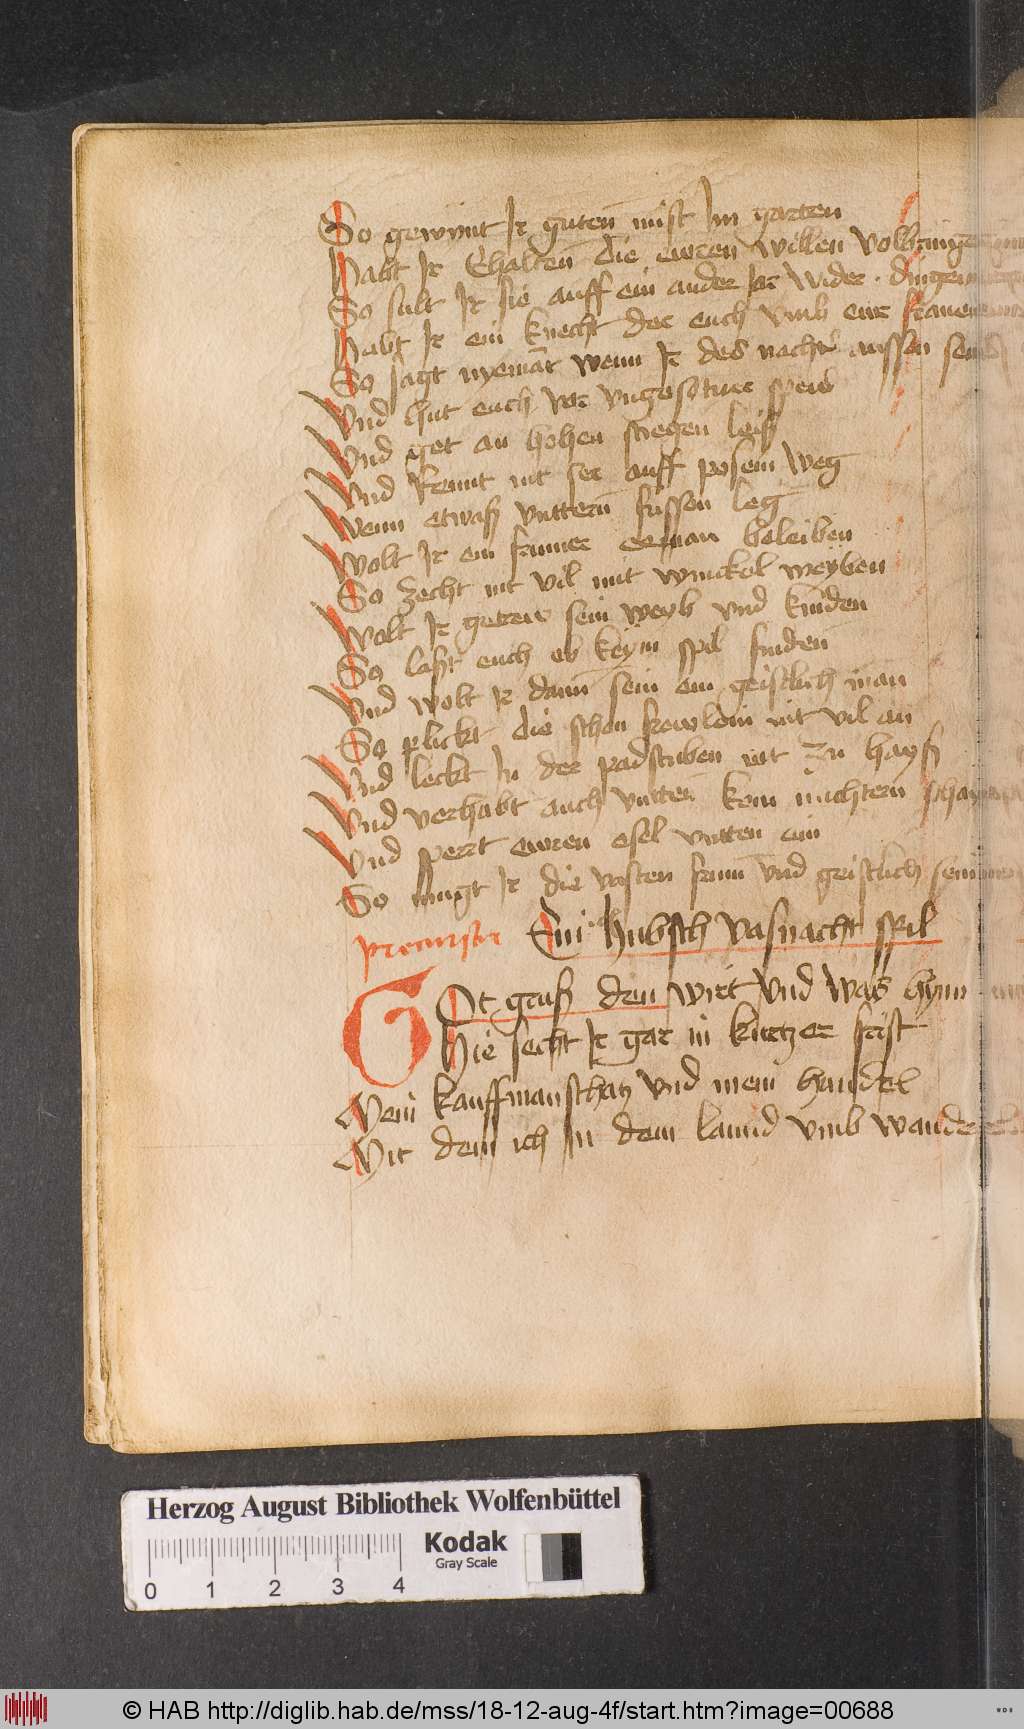 So gewynt Ir guten mist Im garten
Habt Ir Ehalten die ewren willen volbringen
So sult Ir sie auff ein ander Jar wider dingen
Habt Ir ein knecht der euch vmb eur frawen
So sagt nyemat wenn Ir des nachtz aussen
Vnd hut euch vor vngesotner speis
Vnd get an hohen stiegen leiß
Vnd Rennt nit ser auff posem weg
Wenn etwaß vnttern fussen leg
Wolt Ir ein frumer eeman beleiben
So zecht nit vil mit wynckel weyben
Wolt Ir getrew sein weyb vnd kinden
So laßt euch ob keym spil finden
Vnd wolt Ir dann sein ein geistlich man
So plickt die schon frewlein nit vil an
Vnd leckt In der padstuben nit zu hayß
Vnd verhabt auch vntten kein nuchtern
Vnd sperrt ewren esel vntten ein
So mugt Ir die vasten frum vnd geistlich sein
precursor Ein hubsch vasnacht spil
Got gruß den wirt vnd was hynn
Hie secht Ir gar in kurtzer frist
Mein kauffmanschatz vnd mein handel
Mit dem ich In dem lannd vmb wandel
Herzog August Bibliothek Wolfenbüttel
Kodak
Gray Scale
0 1 2 3 4
© HAB http://diglib.hab.de/mss/18-12-aug-4f/start.htm?image=00688